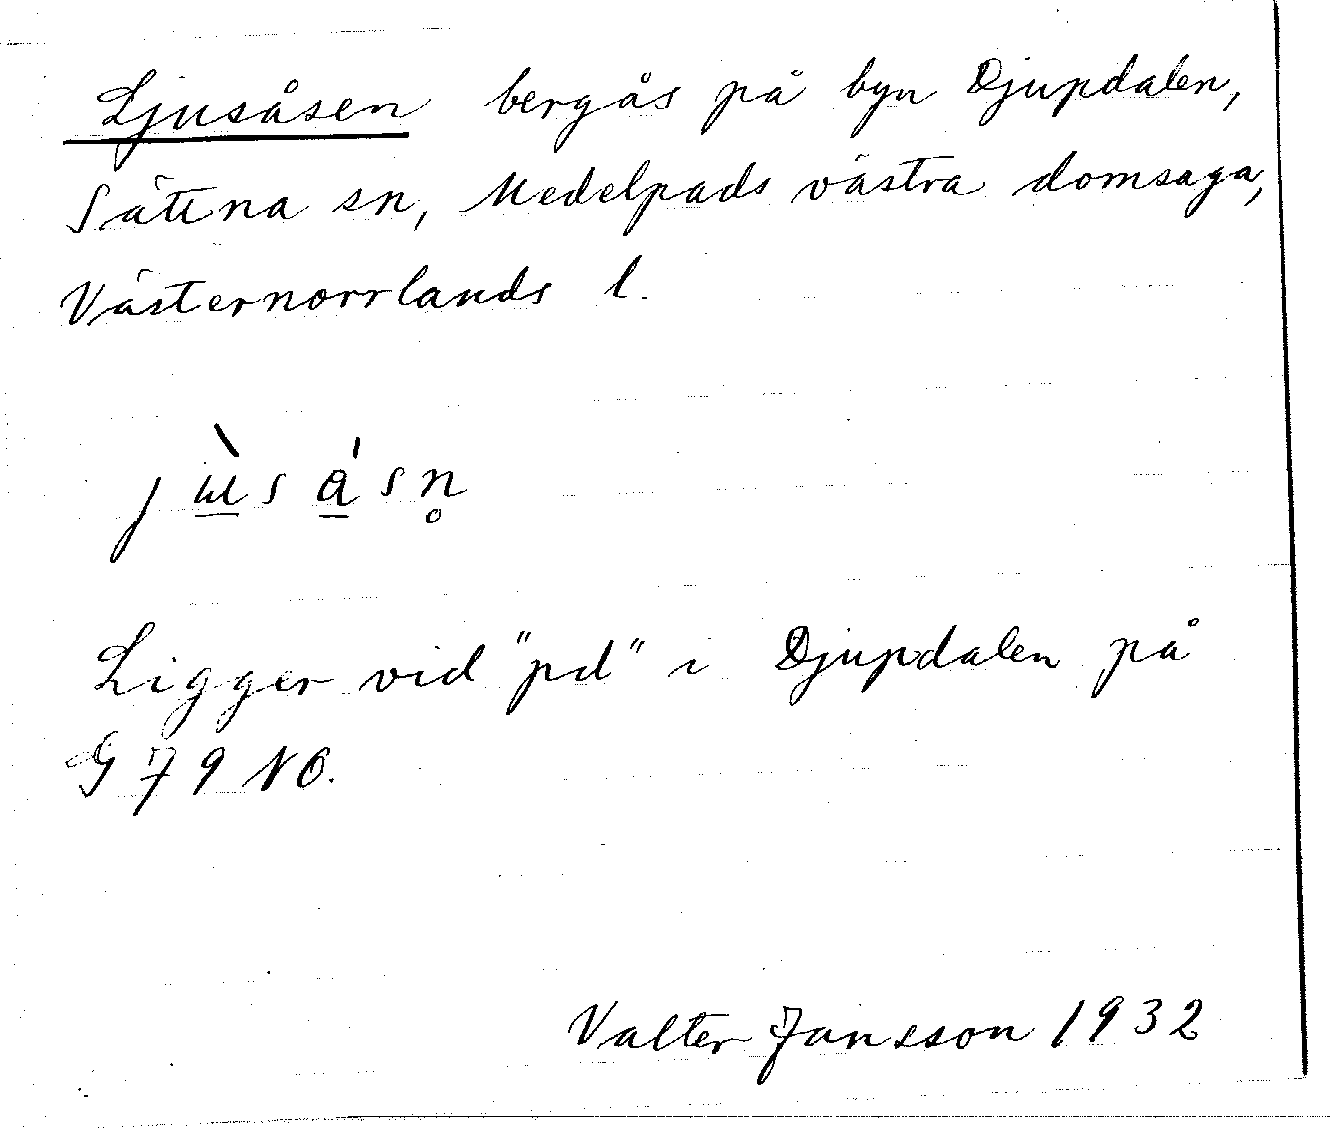 Ljusåsen bergås på byn Djupdalen,
Sättna sn, Medelpads västra domsaga,
Västernorrlands l.
jùsásn̥
Ligger vid "pd" i Djupdalen på
G 79 NO.
Valter Jansson 1932